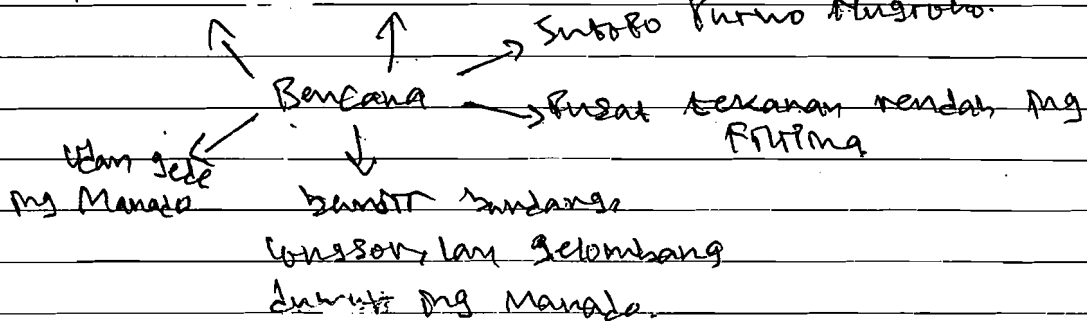 Sutopo Purwo Nugroho.
Bencana
Pusat tekanan rendah ing
Filipina
Udan gede
ing Manado
banjir bandang,
longsor, lan gelombang
duwur ing Manado.